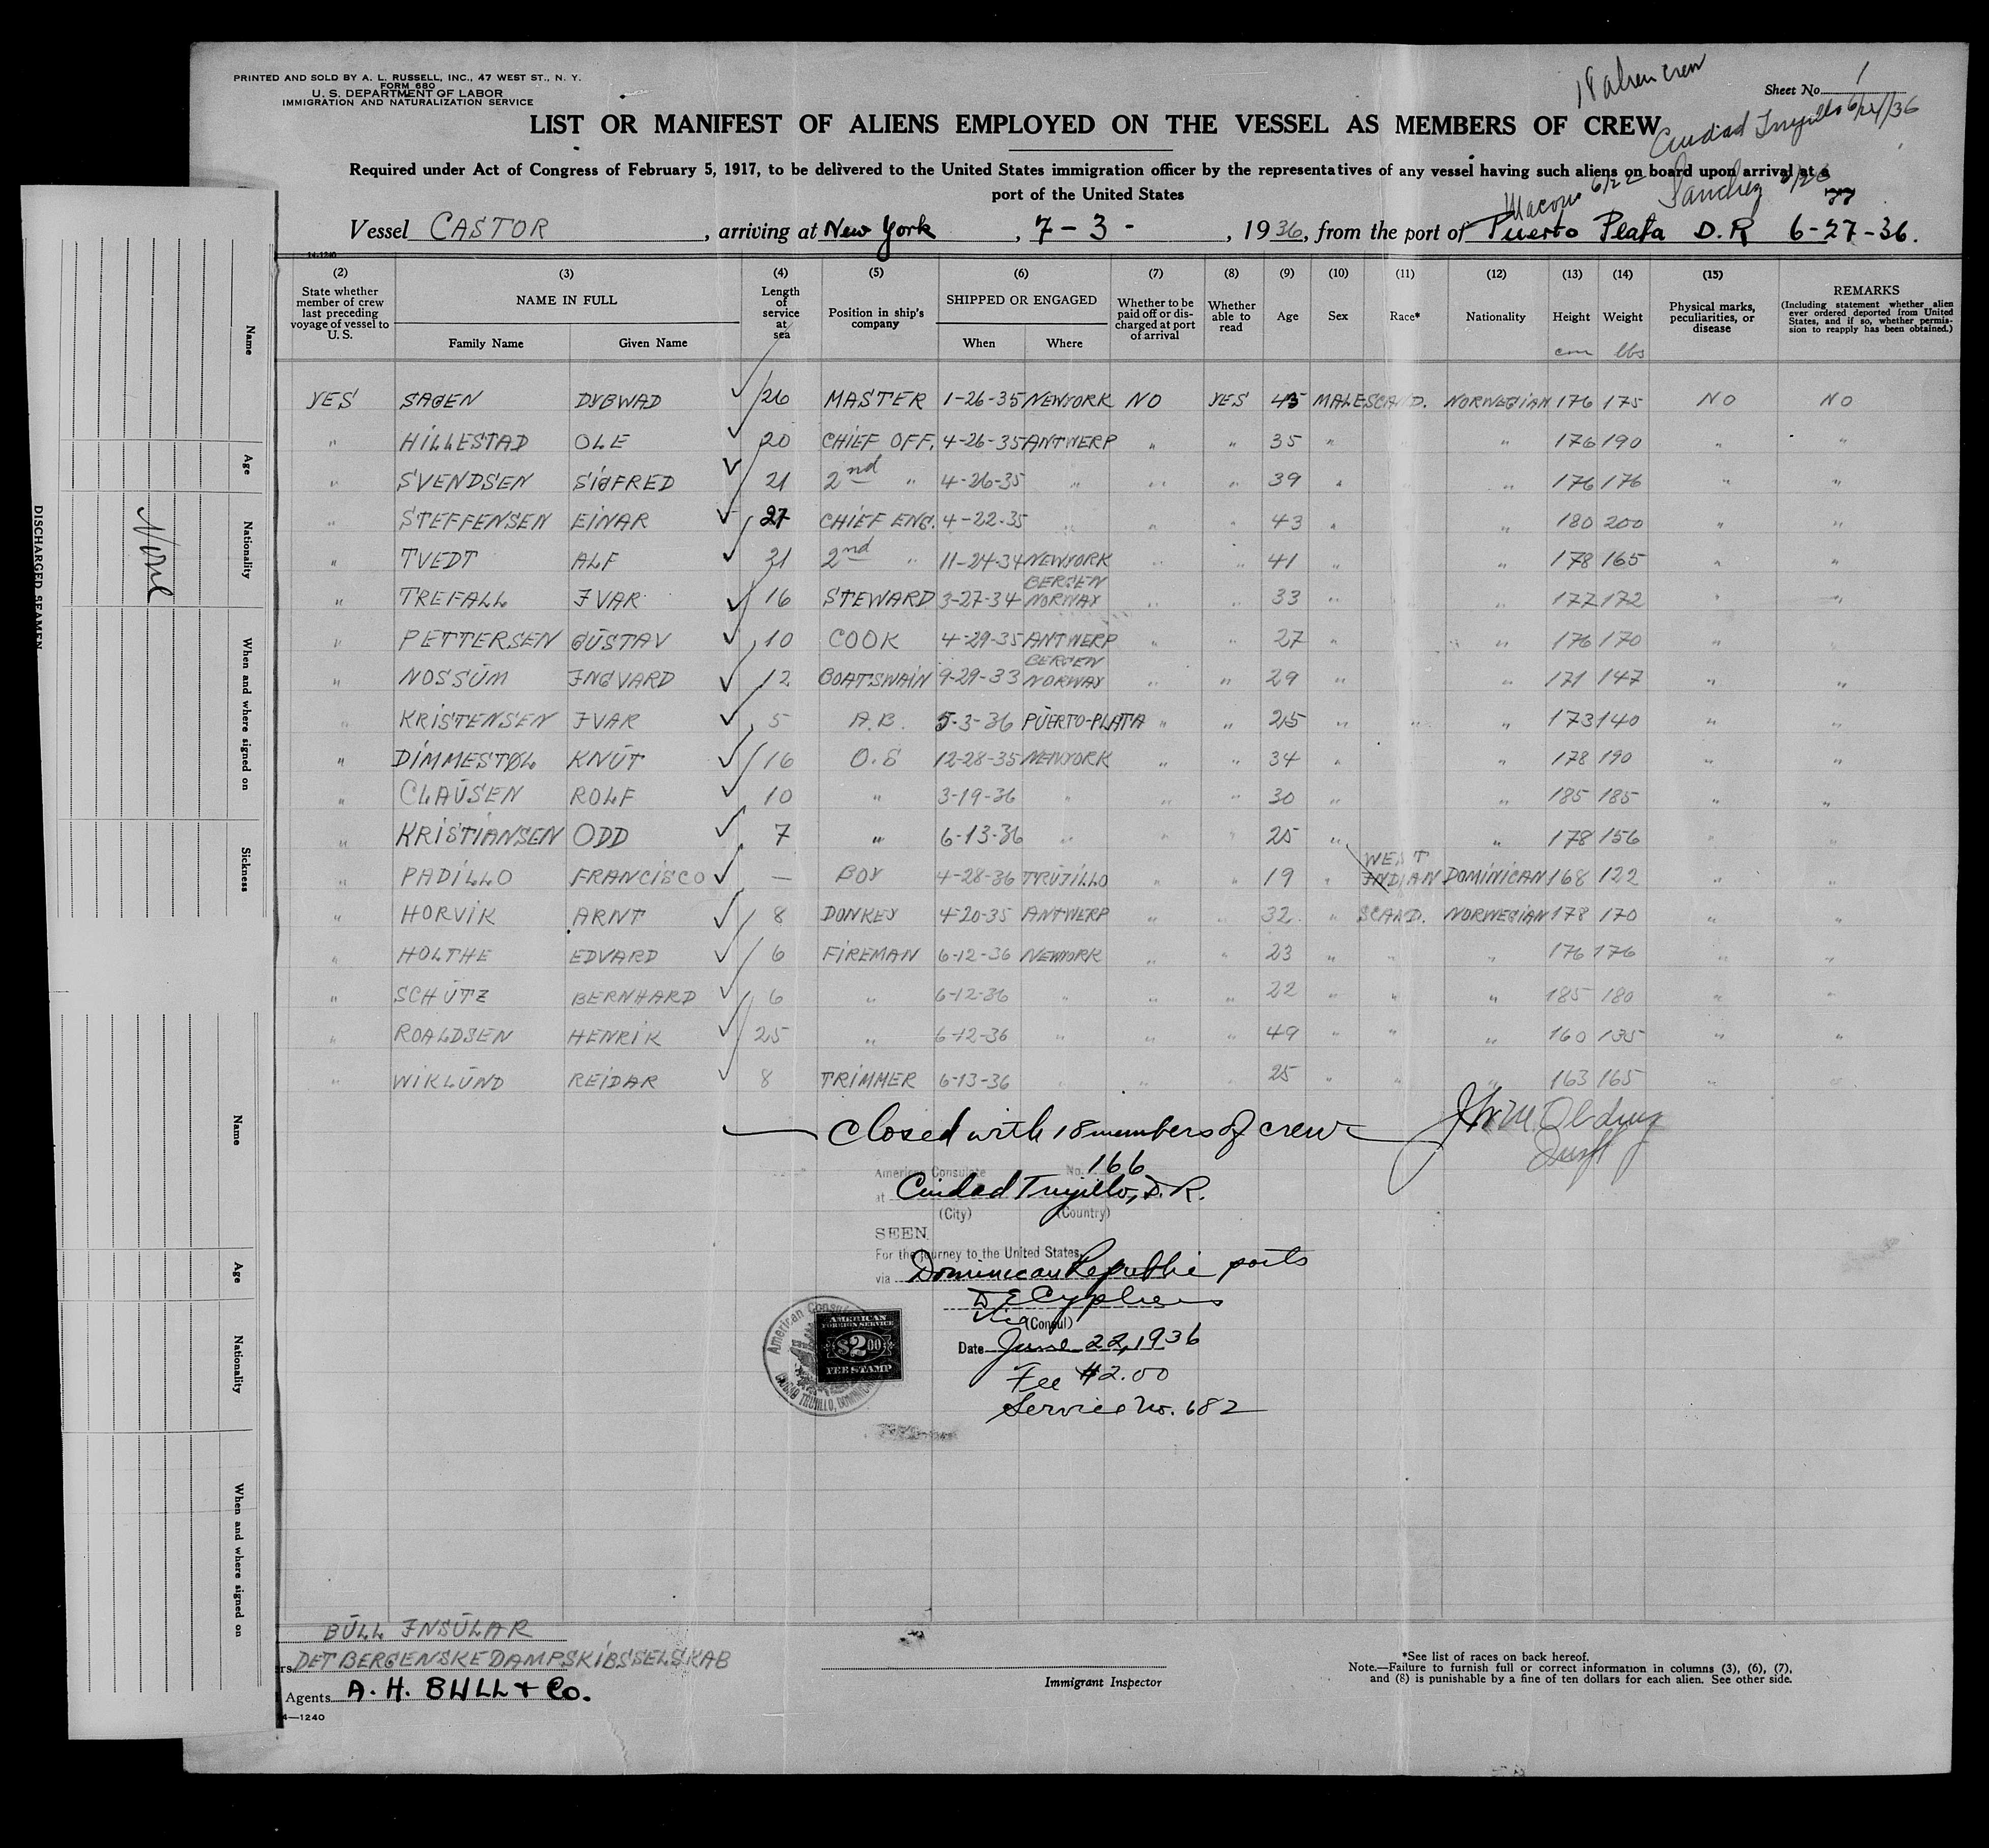 PRINTED AND SOLD BY A. L. RUSSELL, INC., 47 WEST ST., N. Y.
FORM 680
U. S. DEPARTMENT OF LABOR
IMMIGRATION AND NATURALIZATION SERVICE
18 alien crew
Sheet No. 1
LIST OR MANIFEST OF ALIENS EMPLOYED ON THE VESSEL AS MEMBERS OF CREW
Ciudad Trujillo 6/24/36
Required under Act of Congress of February 5, 1917, to be delivered to the United States immigration officer by the representatives of any vessel having such aliens on board upon arrival at a
port of the United States
Macoris 6/22 Sanchez
Vessel CASTOR, arriving at New York, 7-3-, 1936, from the port of Puerto Plata D.R 6-27-36.
14-1240
(2) (3) (4) (5) (6) (7) (8) (9) (10) (11) (12) (13) (14) (15)
State whether member of crew last preceding voyage of vessel to U. S.
NAME IN FULL
Family Name Given Name
Length of service at sea
Position in ship's company
SHIPPED OR ENGAGED
When Where
Whether to be paid off or discharged at port of arrival
Whether able to read
Age Sex Race* Nationality Height Weight
cm lbs
Physical marks, peculiarities, or disease
REMARKS
(Including statement whether alien ever ordered deported from United States, and if so, whether permission to reapply has been obtained.)
YES SAGEN DYBWAD 26 MASTER 1-26-35 NEWYORK NO YES 45 MALE SCAND. NORWEGIAN 176 175 NO NO
" HILLESTAD OLE 20 CHIEF OFF. 4-26-35 ANTWERP " " 35 " " 176 190 " "
" SVENDSEN SIGFRED 21 2nd " 4-26-35 " " " 39 " " 176 176 " "
" STEFFENSEN EINAR 27 CHIEF ENG. 4-22-35 " " " 43 " " 180 200 " "
" TVEDT ALF 21 2nd " 11-24-34 NEWYORK " " 41 " " 178 165 " "
" TREFALL IVAR 16 STEWARD 3-27-34 BERGEN NORWAY " " 33 " " 177 172 " "
" PETTERSEN GUSTAV 10 COOK 4-29-35 ANTWERP " " 27 " " 176 170 " "
" NOSSUM INGVARD 12 BOATSWAIN 9-29-33 BERGEN NORWAY " " 29 " " 171 147 " "
" KRISTENSEN IVAR 5 A.B. 5-3-36 PUERTO-PLATA " " 25 " " " 173 140 " "
" DIMMESTØL KNUT 16 O.S 12-28-35 NEWYORK " " 34 " " 178 190 " "
" CLAUSEN ROLF 10 " 3-19-36 " " " 30 " " 185 185 " "
" KRISTIANSEN ODD 7 " 6-13-36 " " " 25 " " 178 156 " "
" PADILLO FRANCISCO — BOY 4-28-36 TRUJILLO " " 19 " WEST INDIAN DOMINICAN 168 122 " "
" HORVIK ARNT 8 DONKEY 4-20-35 ANTWERP " " 32 " SCAND. NORWEGIAN 178 170 " "
" HOLTHE EDVARD 6 FIREMAN 6-12-36 NEWYORK " " 23 " " " 176 176 " "
" SCHUTZ BERNHARD 6 " 6-12-36 " " " 22 " " " 185 180 " "
" ROALDSEN HENRIK 25 " 6-12-36 " " " 49 " " " 160 135 " "
" WIKLUND REIDAR 8 TRIMMER 6-13-36 " " " 25 " " " 163 165 " "
Closed with 18 members of crew
American Consulate No. 166
at Ciudad Trujillo, D. R.
(City) (Country)
SEEN
For the journey to the United States,
via Dominican Republic ports
Vice (Consul)
Date June 22, 1936
Fee $2.00
Service No. 682
AMERICAN
FOREIGN SERVICE
$2.00
FEE STAMP
BULL INSULAR
rs. DET BERGENSKE DAMPSKIBSSELSKAB
Agents A. H. BULL & Co.
4—1240
Immigrant Inspector
*See list of races on back hereof.
Note.—Failure to furnish full or correct information in columns (3), (6), (7),
and (8) is punishable by a fine of ten dollars for each alien. See other side.
DISCHARGED SEAMEN
Name
Age
Nationality
When and where signed on
Sickness
None
Name
Age
Nationality
When and where signed on